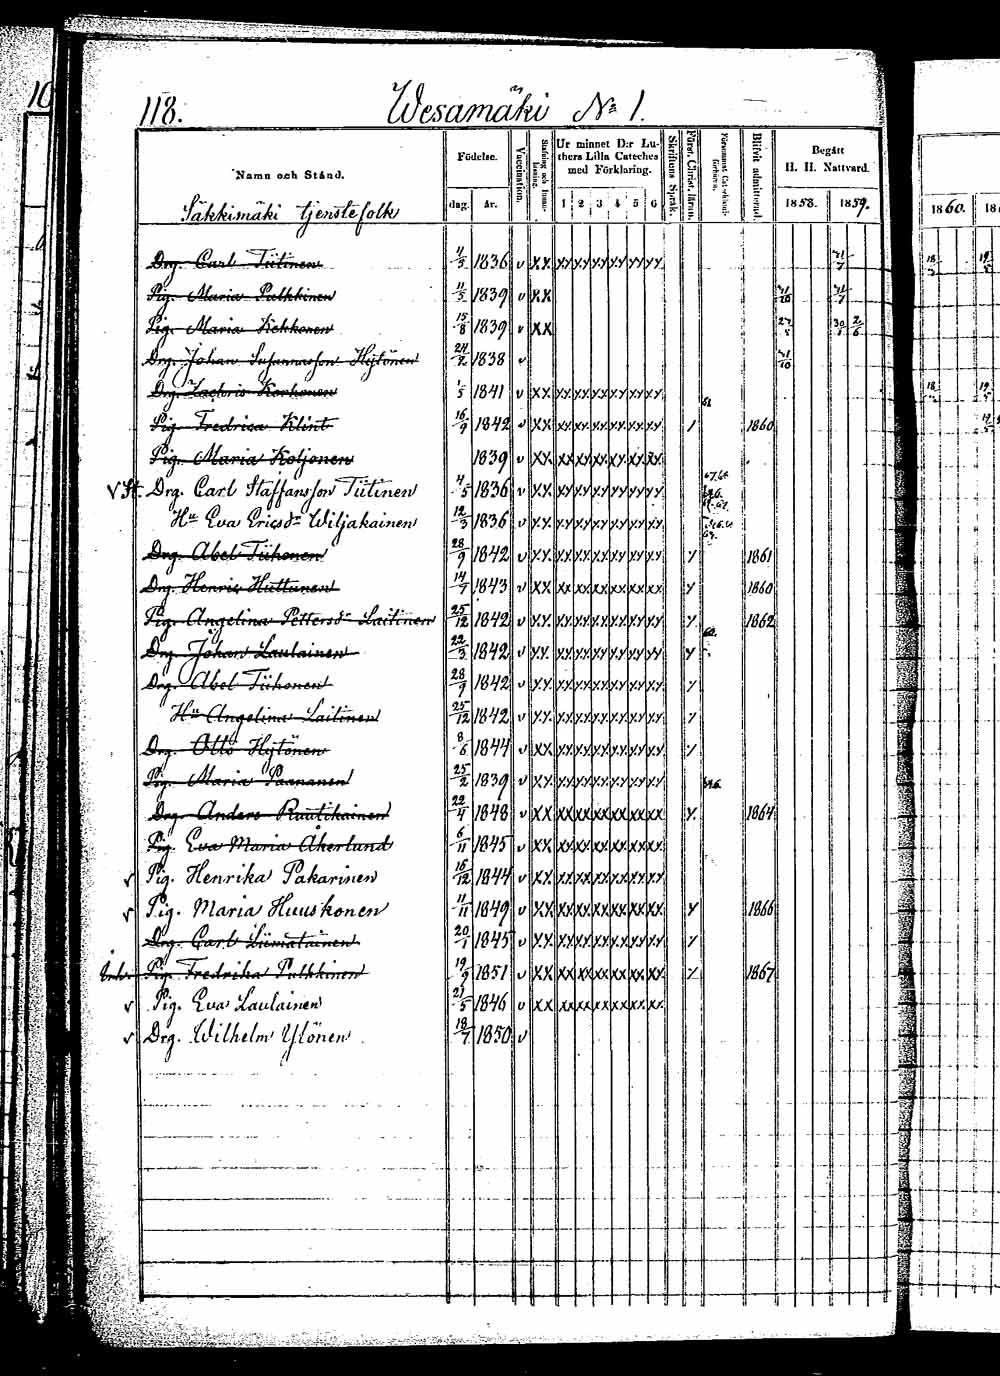 10
118. Wesamäki No 1.
Namn och Stånd.
Säkkimäki tjenstefolk
Födelse.
dag. år.
Vaccination.
Ur minnet D:r Luthers Lilla Cateches med Förklaring.
1 2 3 4 5 6
Skriftens Språk.
Först. Christ. läran.
Blifvit admitterad.
Begått H. H. Nattvard.
1858. 1859.
1860.
Drg. Carl Tiitinen 1836 v XX xx xx xx xx xx xx
Pig. Maria Pulkkinen 11/5 1839 v XX
Pig. Maria Kekkonen 15/8 1839 v XX
Drg. Johan Susannasson Hytönen 24/2 1838 v
Drg. Zachris Korhonen 1841 v XX xx xx xx xx xx xx
Pig. Fredrica Klint 16/9 1842 v XX xx xx xx xx xx xx / 1860
Pig. Maria Koljonen 1839 v XX xx xx xx xx xx xx
Drg. Carl Staffansson Tiitinen 4/5 1836 v XX xx xx xx xx xx xx
Hu Eva Ericsdr Wiljakainen 12/3 1836 v XX xx xx xx xx xx xx
Drg. Abel Tiihonen 28/9 1842 v XX xx xx xx xx xx xx 1861
Drg. Henric Huttunen 14/7 1843 v XX xx xx xx xx xx xx 1860
Pig. Angelina Pettersdr Laitinen 25/12 1842 v XX xx xx xx xx xx xx 1862
Drg. Johan Laulainen 22/3 1842 v XX xx xx xx xx xx xx
Drg. Abel Tiihonen 28/9 1842 v XX xx xx xx xx xx xx
Hu Angelina Laitinen 25/12 1842 v XX xx xx xx xx xx xx
Drg. Otto Hytönen 8/6 1844 v XX xx xx xx xx xx xx
Pig. Maria Paananen 25/2 1839 v XX xx xx xx xx xx xx
Drg. Anders Ruutikainen 22/4 1848 v XX xx xx xx xx xx xx 1864
Pig. Eva Maria Åkerlund 6/11 1845 v XX xx xx xx xx xx xx
v Pig. Henrika Pakarinen 16/12 1844 v XX xx xx xx xx xx xx
v Pig. Maria Huuskonen 11/11 1849 v XX xx xx xx xx xx xx 1866
Drg. Carl Liimatainen 20/1 1845 v XX xx xx xx xx xx xx
Pig. Fredrika Pulkkinen 19/9 1851 v XX xx xx xx xx xx xx 1867
v Pig. Eva Laulainen 21/5 1846 v XX xx xx xx xx xx xx
v Drg. Wilhelm Ylönen 18/7 1850 v